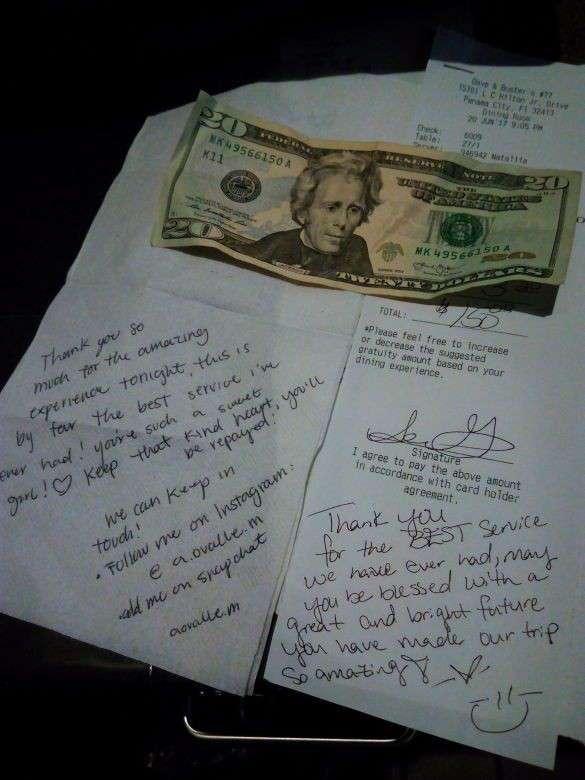 Dave & Buster's #77
15701 L C Hilton Jr. Drive
Panama City, Fl 32413
Dining Room
20 JUN'17 9:05 PM
Check: 6009
Table: 27/1
Server: 946942 Natallia
20
FEDERAL RESERVE NOTE
THE
UNITED STATES
OF AMERICA
20
MK 49566150 A
K11
MK 49566150 A
20
TWENTY DOLLARS
20
TOTAL: $
*Please feel free to increase
or decrease the suggested
gratuity amount based on your
dining experience.
Signature
I agree to pay the above amount
in accordance with card holder
agreement.
Thank you
for the BEST service
we have ever had, may
you be blessed with a
great and bright future
you have made our trip
so amazing
Thank you so
much for the amazing
experience tonight, this is
by far the best service i've
ever had! you're such a sweet
girl! ♡ Keep that kind heart, you'll
be repayed!
we can keep in
touch!
• Follow me on Instagram:
@ a.ovalle.m
• add me on snapchat
aovalle.m